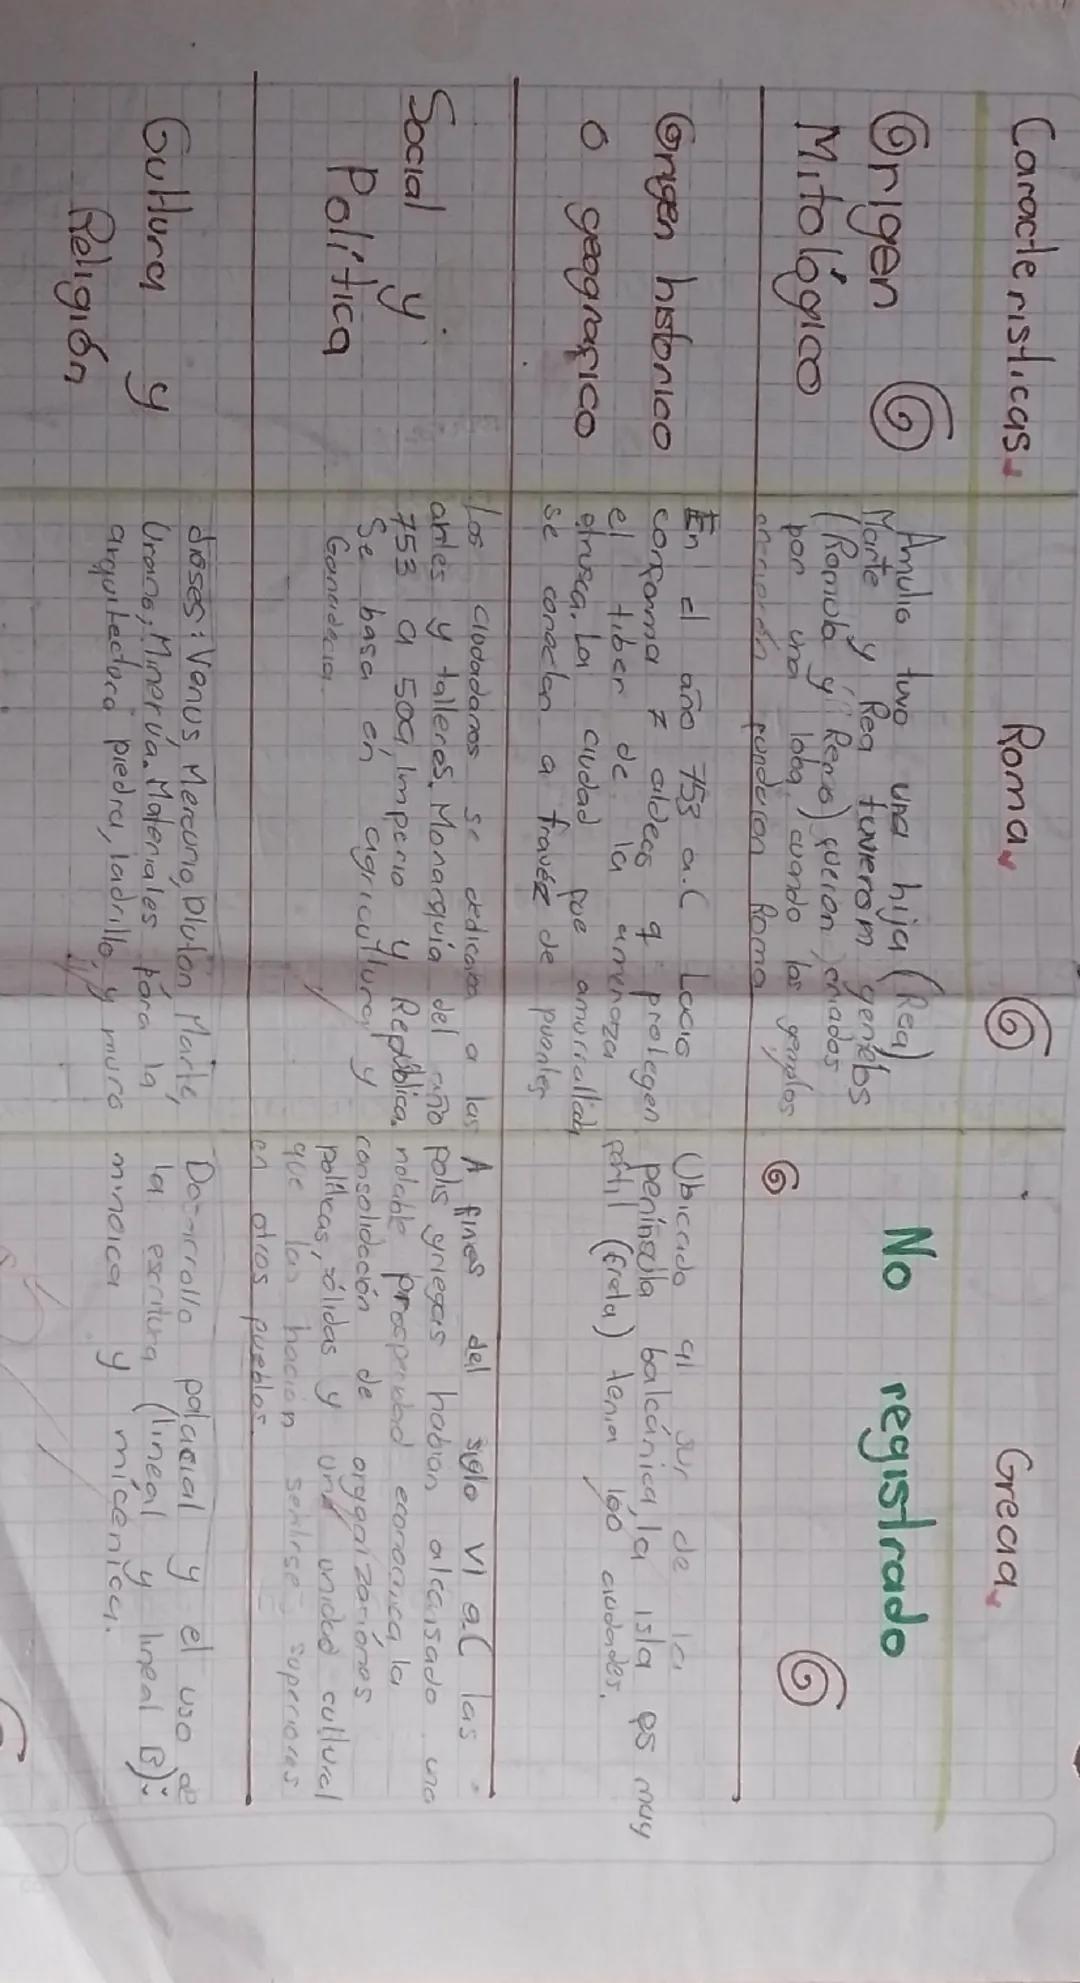 Caracteristicas
Roma
Grecia
Origen
Mitológico
Amulo tuvo una hija (Rea)
Marte y Rea tuvieron gemelos
(Romulo y Remo) fueron criados
por una loba, cuando los gemelos
fundaron Roma
No registrado
Origen historico
o geografico
En el año 753 a.C Lacio
conforma 7 aldeas q protegen
el tiber de la amenaza
etrusca. La ciudad fue amurallada
se conectan a través de puentes
Ubicado al sur de la
península balcánica, la isla es muy
fértil (Creta) tenia 100 ciudades.
Social y
Política
Los ciudadanos se dedicaba a las
artes y talleres. Monarquía del año
753 a 509, Imperio y República.
Se basa en agricultura y
Ganadecia
A fines del siglo VI a.C las
polis griegas habian alcansado una
notable prosperidad economica, la
consolidación de orggaizaciones
políticas, sólidas y una unidad cultural
que las hacian sentirse superiores
en otros pueblos.
Cultura y
Religión
dioses: Venus, Mercurio, Plutón Marte,
Urano, Minerva. Materiales para la
arquitectura piedra, ladrillo, y muro
Desarrollo palacial y el uso de
la escritura (lineal y lineal B):
minoica y micénica.